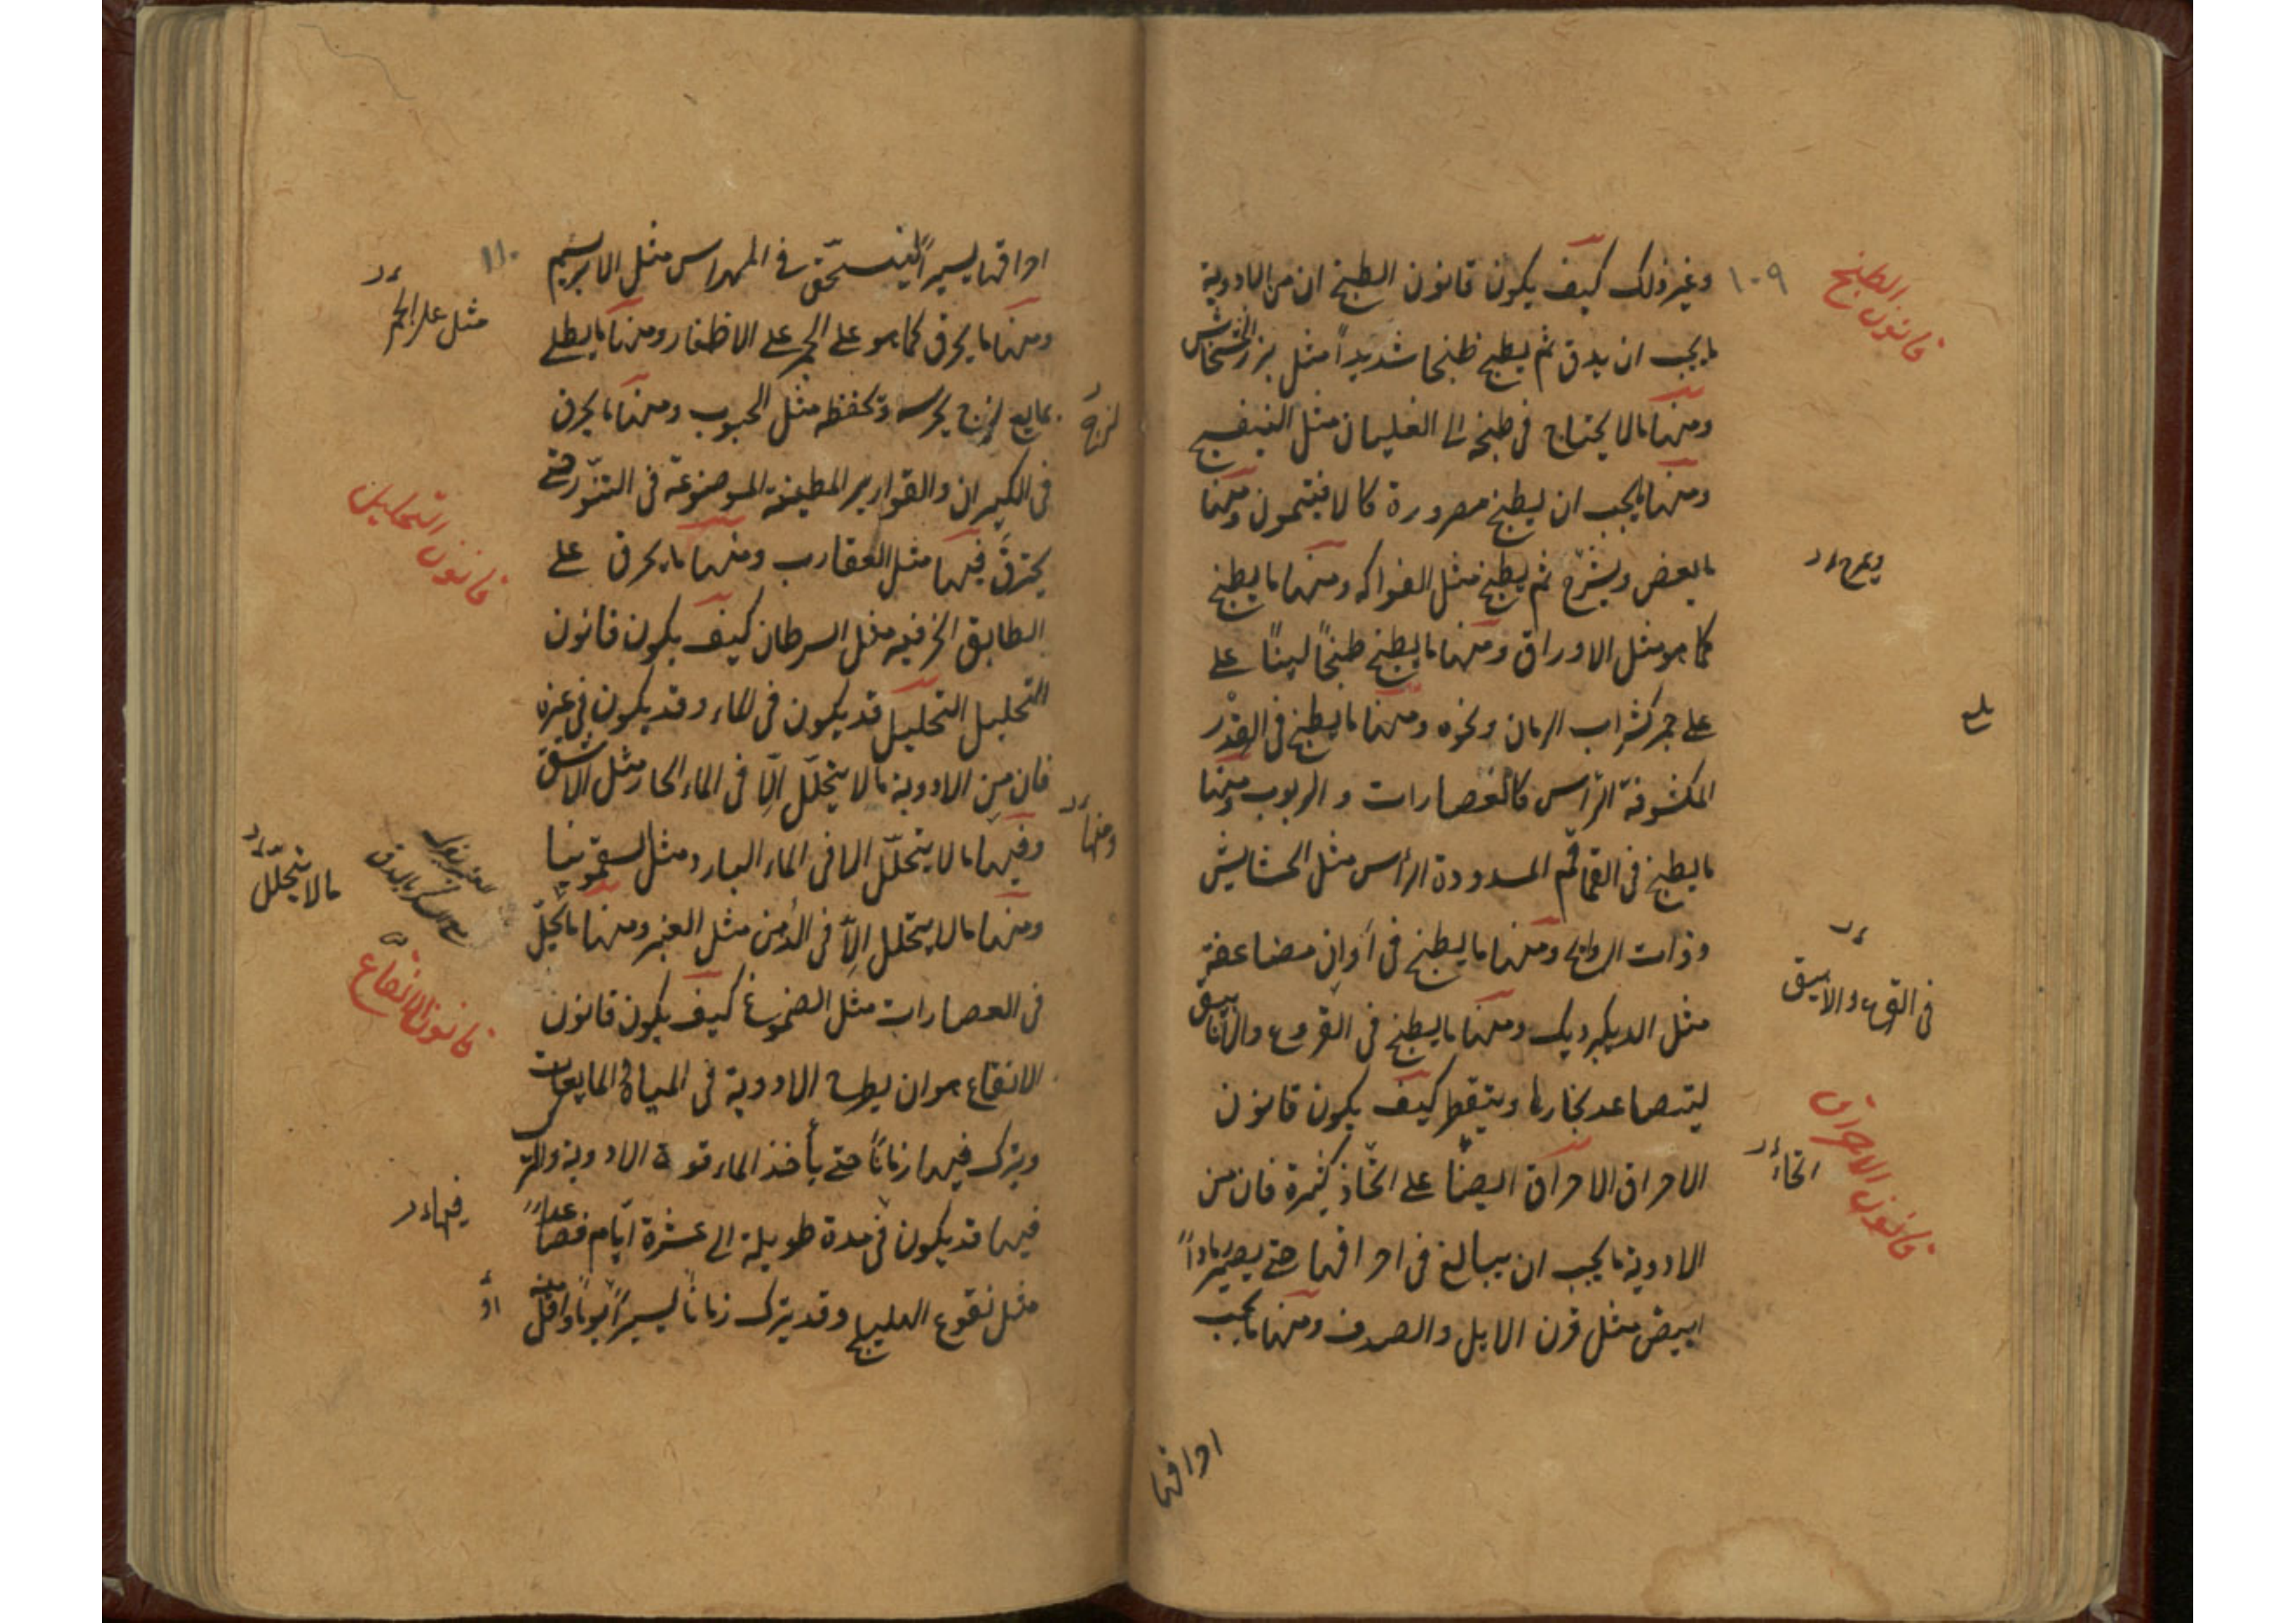 وغير ذلك كيف يكون قانون الطبخ ان من الادوية
ما يجب ان يدق ثم يطبخ طبخا شديداً مثل بزر الخشخاش
ومنها ما لا يحتاج فى طبخه الى الغليان مثل البنفسج
ومنها ما يجب ان يطبخ مصرورة كالافتيمون ومنها
ما يعض ويشرح ثم يطبخ مثل الفواكه ومنها ما يطبخ
كما هو مثل الاوراق ومنها ما يطبخ طبخاً ليناً على
على جمر كشراب الرمان ونحوه ومنها ما يطبخ فى القدر
المكشوفة الرأس كالعصارات والربوب ومنها
ما يطبخ فى القماقم المسدودة الرأس مثل الحشايش
وذات الروايح ومنها ما يطبخ فى أوانٍ مضاعفة
مثل الديكبرديك ومنها ما يطبخ فى القروع والأنابيق
ليتصاعد بخارها ويتقطر كيف يكون قانون
الاحراق الاحراق ايضاً على اتخاذ كثيرة فان من
الادوية ما يجب ان يبالغ فى احراقها حتى يصير رماداً
ابيض مثل قرن الايل والصدف ومنها ما يجب
احراقها
١٠٩
قانون الطبخ
يلى
فى القرع والانبيق
قانون الاحراق
انحاء
احراقها يسيراً لينسحق فى المهراس مثل الابريسم
ومنها ما يحرق كما هو على الجمر على الاظفار ومنها ما يطلى
بمايع لزج يحرسه وتحفظه مثل الحبوب ومنها ما يحرق
فى الكيزان والقوارير المطينة الموضوعة فى التنور حتى
يحترق فيها مثل العقارب ومنها ما يحرق على
الطابق الخزفية مثل السرطان كيف يكون قانون
التحليل التحليل قد يكون فى الماء وقد يكون فى غيره
فان من الادوية ما لا يتحلّل الّا فى الماء الحار مثل الاشق
وفيها ما لا يتحلّل الا فى الماء البارد مثل السقمونيا
ومنها ما لا يتحلل الاّ فى الدهن مثل العنبر ومنها ما يحلّ
فى العصارات مثل الصموغ كيف يكون قانون
الانقاع هو ان يطرح الادوية فى المياه والمايعات
ويترك فيها زماناً حتى يأخذ الماء قوة الادوية والترك
فيها قد يكون فى مدة طويلة الى عشرة ايّام فصاعداً
مثل نقوع الهليلج وقد يترك زماناً يسيراً يوماً واقل منه
١١٠
مثل على الجمر
لزجة
قانون التحليل
ومنها
ما لا يتحلّل
قانون الانقاع
فيها
او